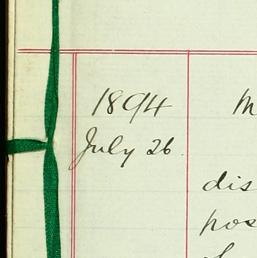 1894
July 26.
dis
pos